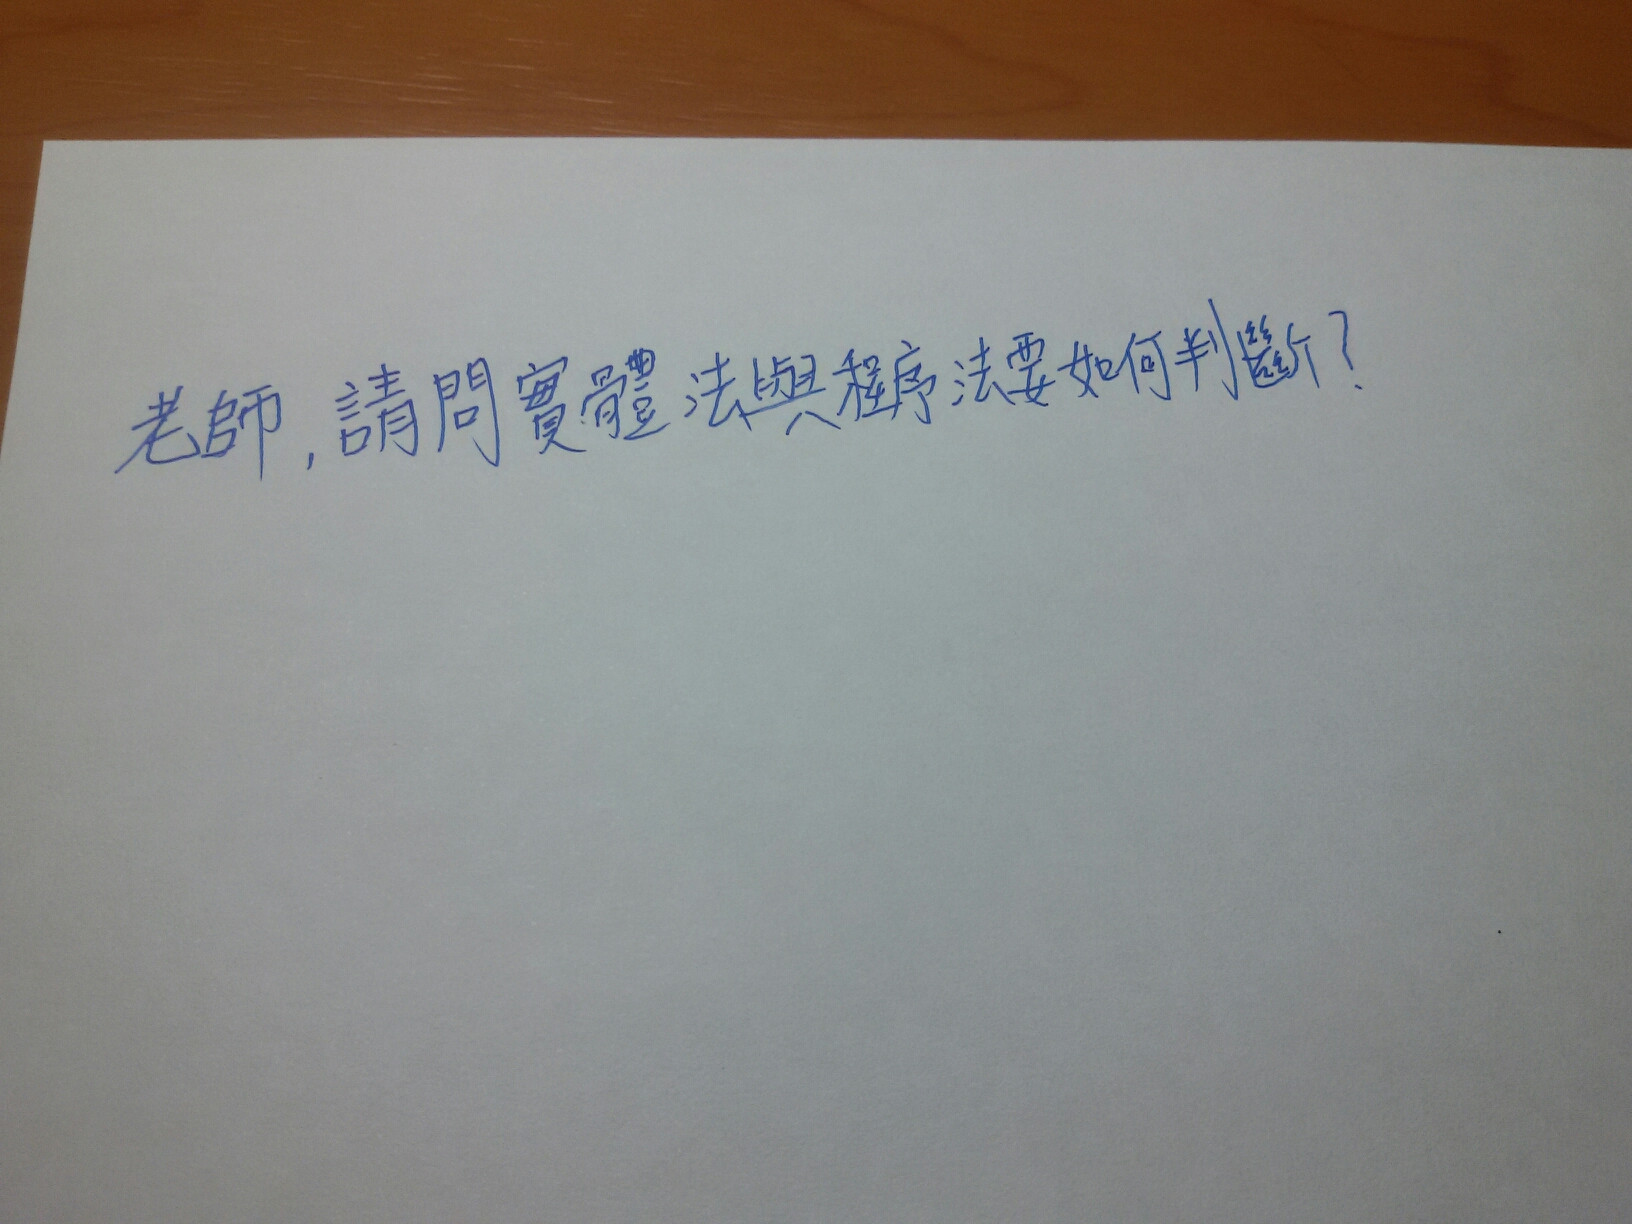 老師,請問實體法與程序法要如何判斷?